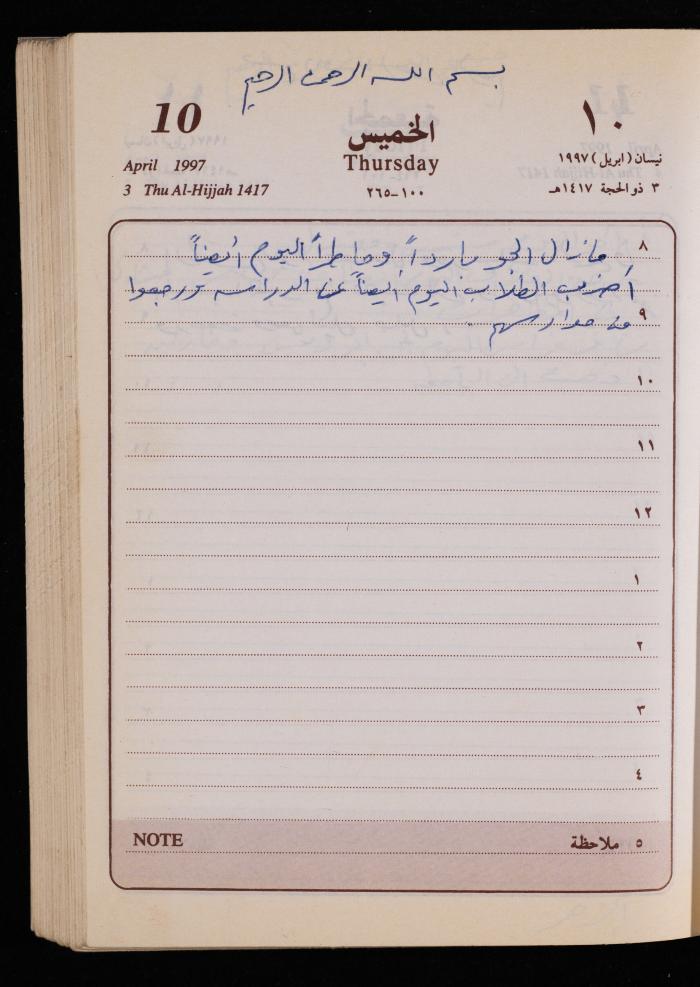 بسم الله الرحمن الرحيم
10
الخميس
١٠
April 1997
Thursday
نيسان (ابريل) ١٩٩٧
3 Thu Al-Hijjah 1417
١٠٠-٢٦٥
٣ ذو الحجة ١٤١٧هـ
٨ مازال الجو بارداً وماطراً اليوم أيضاً
أضرب الطلاب اليوم أيضاً عن الدراسه ورجعوا
٩ من مدارسهم .
١٠
١١
١٢
١
٢
٣
٤
NOTE ٥ ملاحظة